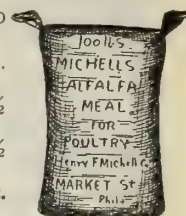 100 lbs
MICHELLS
ALFALFA
MEAL
FOR
POULTRY
Henry F Michell Co.
MARKET St
Phila